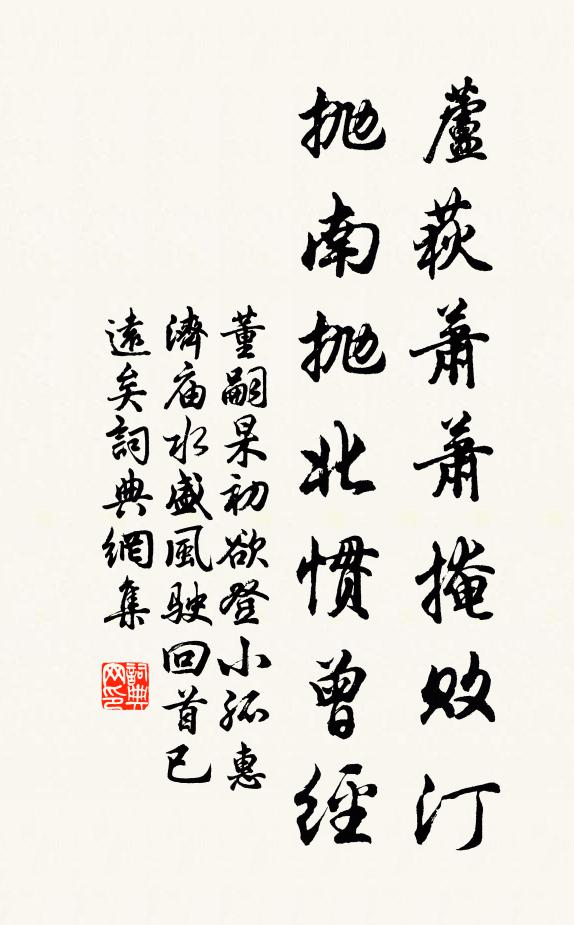 蘆荻蕭蕭掩敗汀
拋南拋北慣曾經
董嗣杲初欲登小孤惠
濟廟水盛風駛回首已
遠矣詞典網集
詞典网印